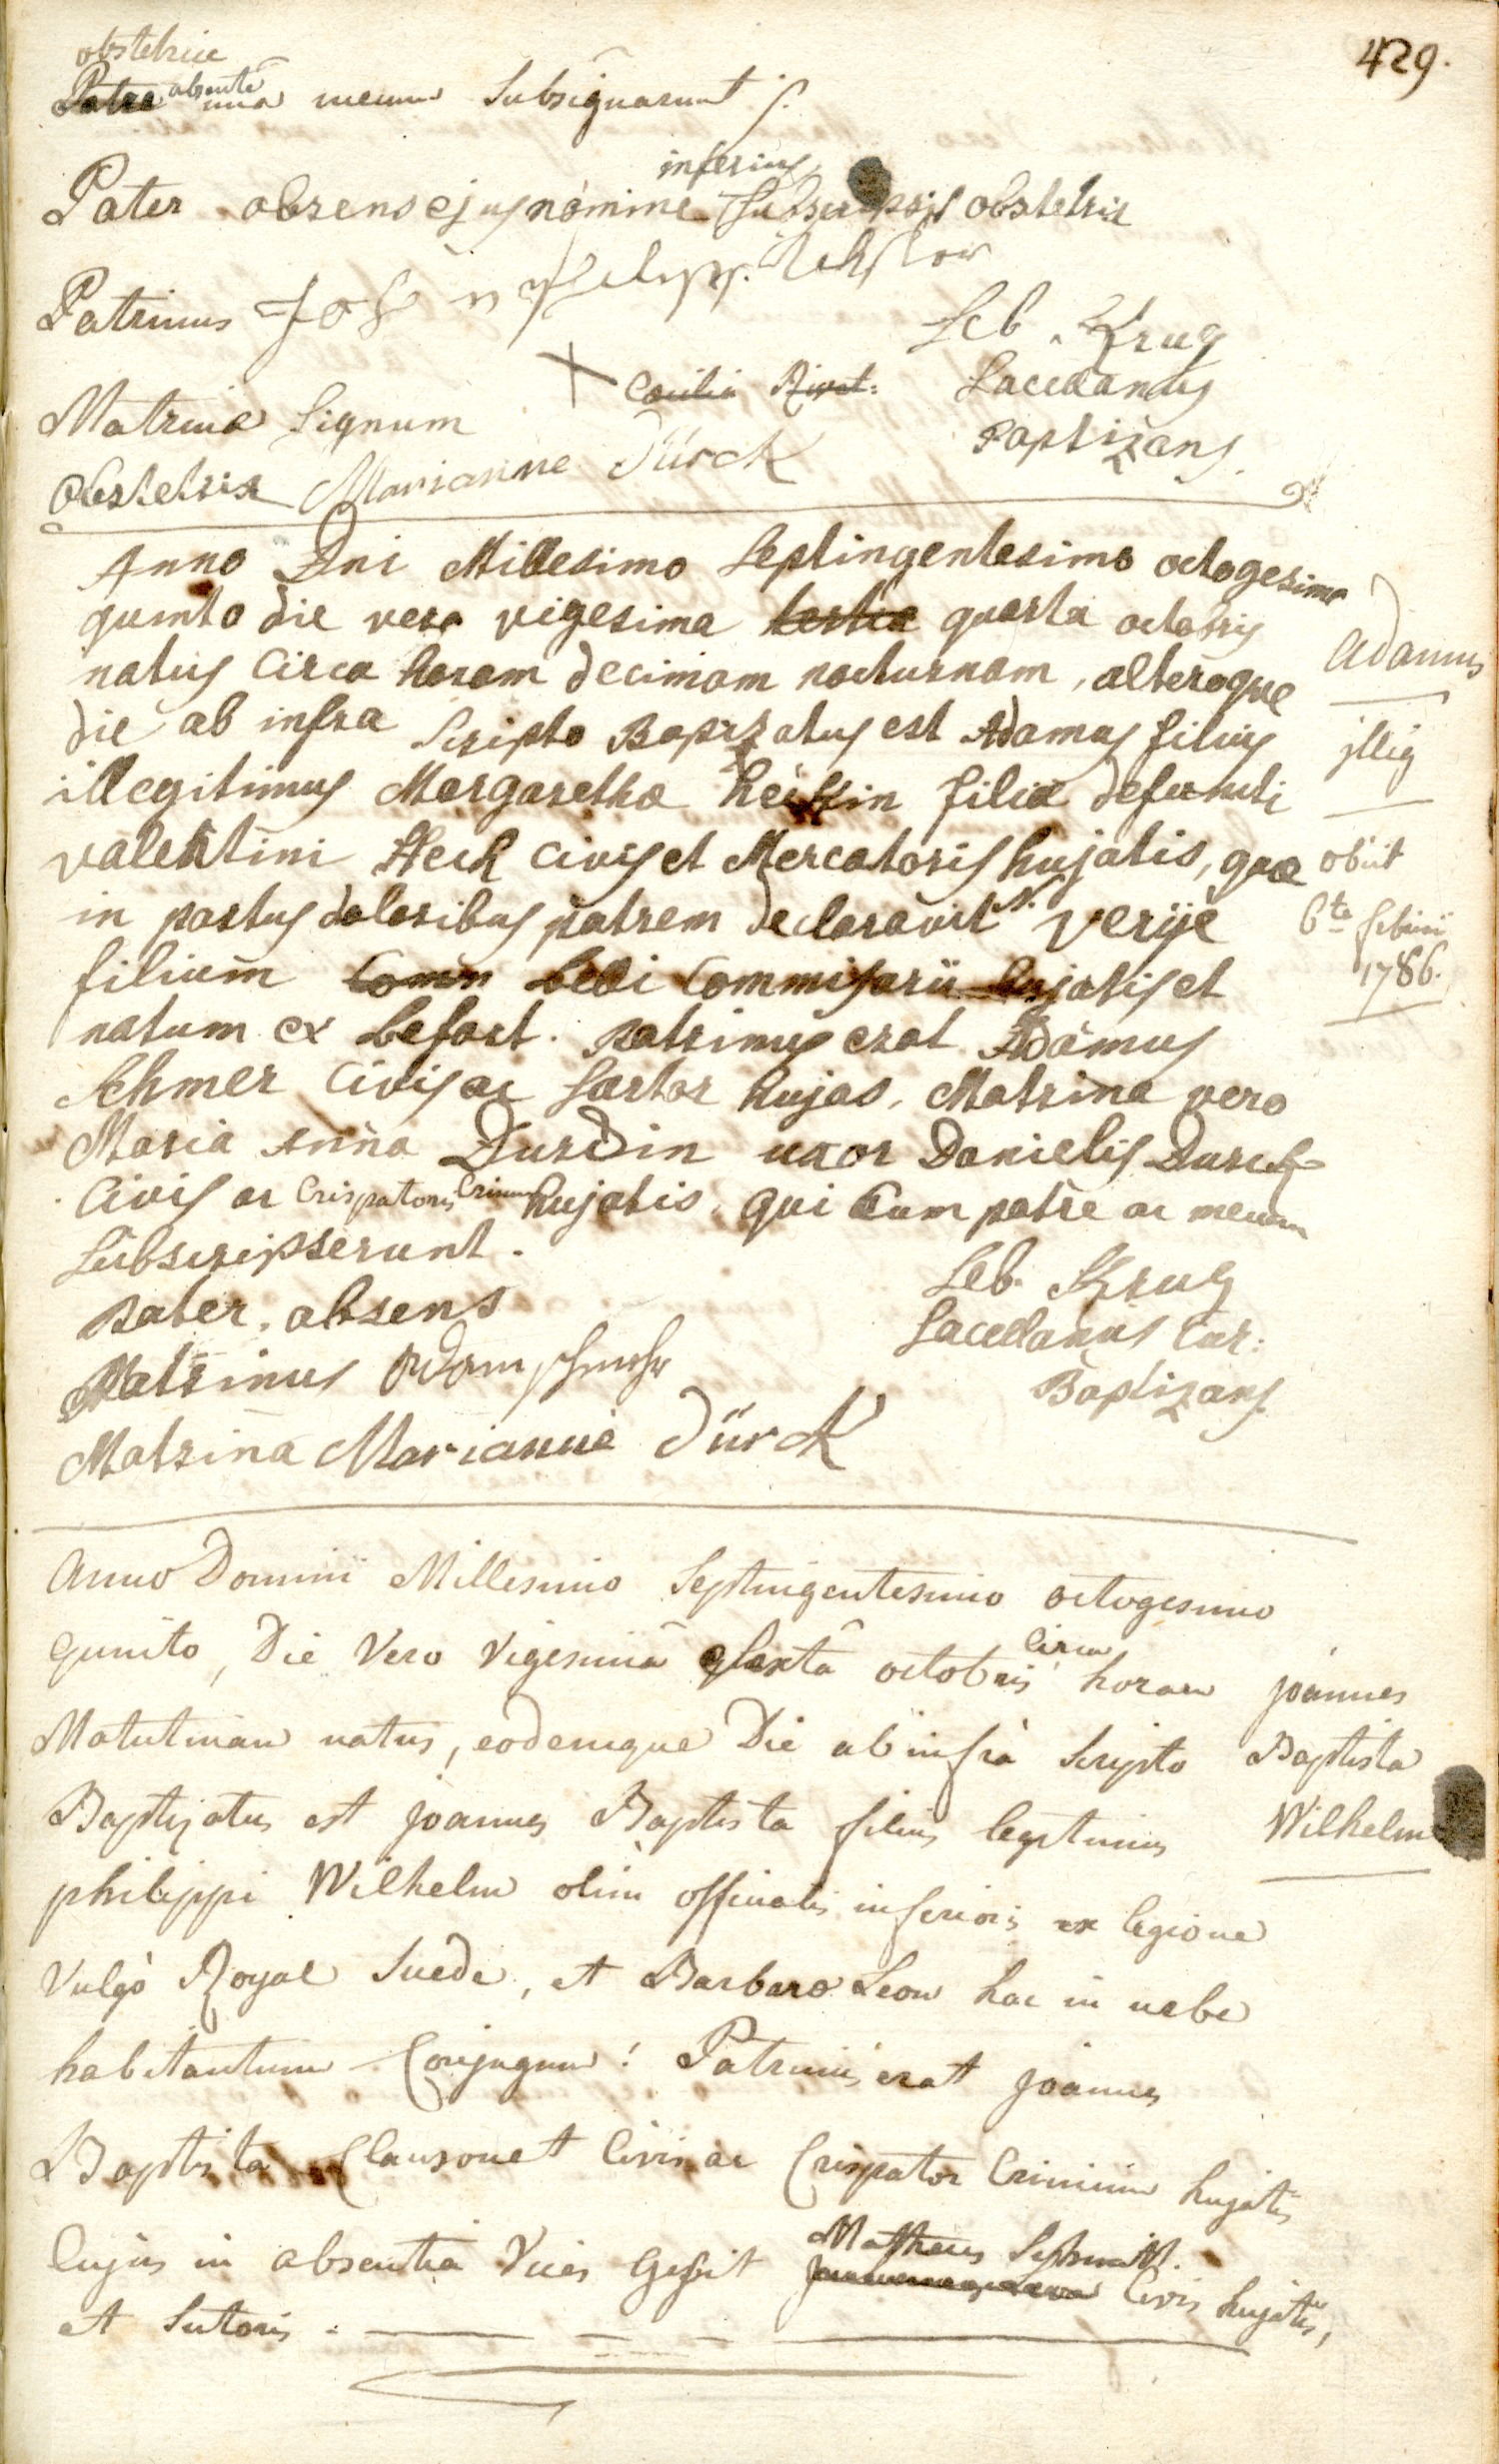 429.
obstetrice
Patre absente una mecum Subsignarunt
Pater absens ejus nomine inferius Subscripsit obstetrix
Patrinus
Seb. Krug
Matrina Signum + Sacellanus
Baptizans.
obstetrix Marianne Dürck
Anno Dni Millesimo Septingentesimo octogesimo
quinto die vero vigesima tertia quarta octobris
natus Circa horam decimam nocturnam, alteroque
die ab infra Scripto Baptizatus est Adamus filius
illegitimus Margaretha heckin filia defuncti
valentini Heck Civis et Mercatoris hujatis, quae
in partus doloribus patrem declaravit N. Verije
filium Comm belli Commissarii hujatis et
natum ex befort. patrinus erat Adamus
Schmer Civis ac Sartor hujas, Matrina vero
Maria Anna Durckin uxor Danielis Durck
Civis ac Crispatoris Crinium hujatis, qui Cum patre ac mecum
Subscripserunt.
Pater absens
Seb. Krug
Sacellanus Cur:
Patrinus Adam
Baptizans.
Matrina Marianne Dürck
Adamus
illig
obiit
6ta febrii
1786.
Anno Domini Millesimo Septingentesimo octogesimo
Quinto, Die Vero Vigesima Sexta octobris Circa horam
Matutinam natus, eodemque Die ab infrà Scripto
Baptizatus est joannes Baptista filius legitimus
philippi Wilhelm olim officialis inferioris ex legione
Vulgò Royal Suede, et Barbara Leon hac in urbe
habitantium Conjugum: Patrinus erat joannes
Baptista Clausonet Civis ac Crispator Crinium hujatis
Cujus in absentia Vices Gessit Matheus Schmitt. Civis hujatis,
et Sutoris.
joannes
Baptista
Wilhelm